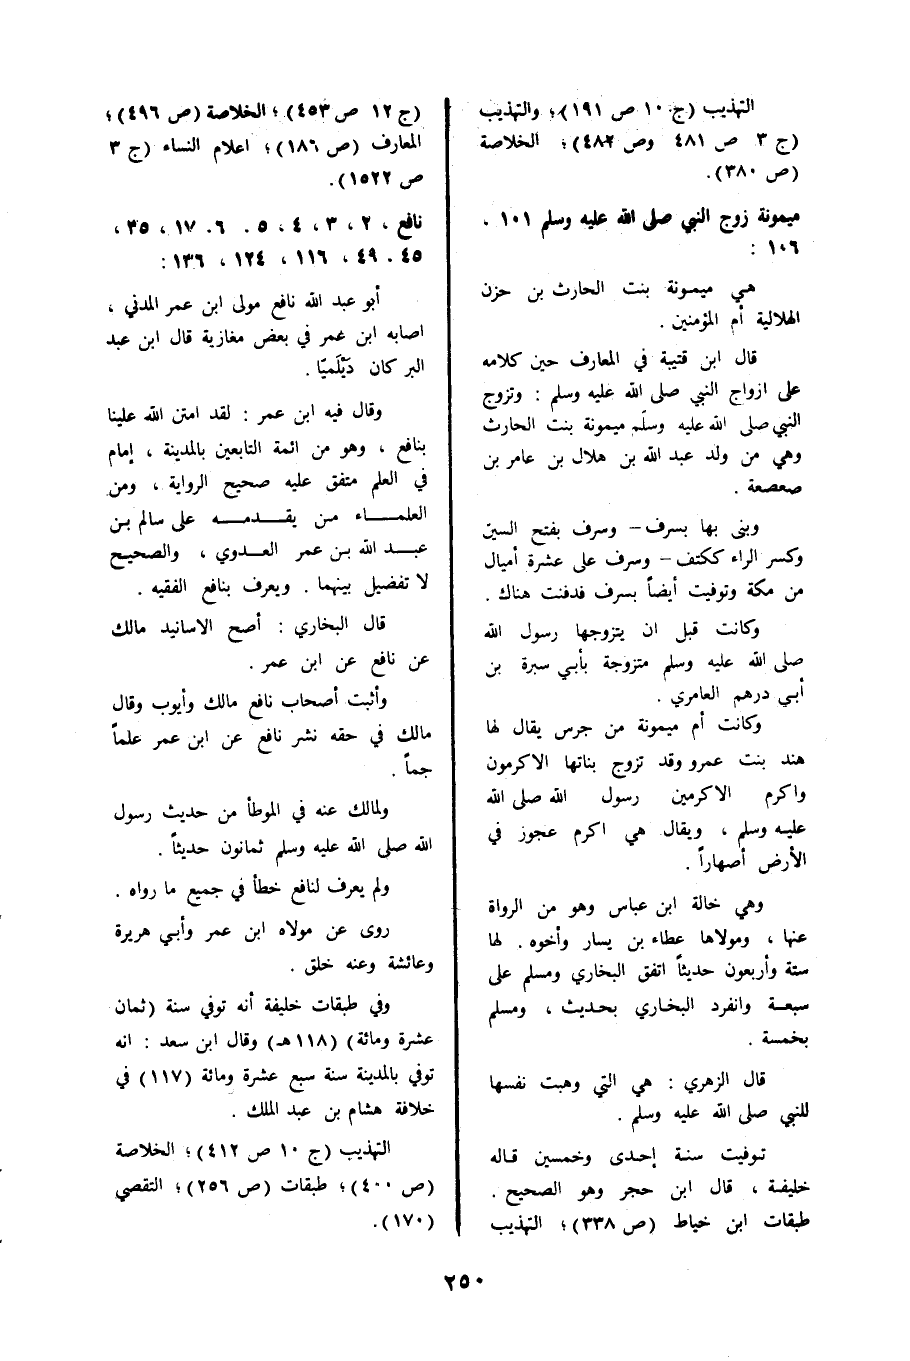 التهذيب (ج ١٠ ص ١٩١)؛ والتهذيب
(ج ٣ ص ٤٨١ وص ٤٨٢)؛ الخلاصة
(ص ٣٨٠).
ميمونة زوج النبي صلى الله عليه وسلم ١٠١ .
١٠٦ :
هي ميمونة بنت الحارث بن حزن
الهلالية أم المؤمنين .
قال ابن قتيبة في المعارف حين كلامه
على ازواج النبي صلى الله عليه وسلم : وتزوج
النبي صلى الله عليه وسلّم ميمونة بنت الحارث
وهي من ولد عبد الله بن هلال بن عامر بن
صعصعة .
وبنى بها بسرف – وسرف بفتح السين
وكسر الراء ككتف – وسرف على عشرة أميال
من مكة وتوفيت أيضاً بسرف فدفنت هناك .
وكانت قبل ان يتزوجها رسول الله
صلى الله عليه وسلم متزوجة بأبي سبرة بن
أبي درهم العامري .
وكانت أم ميمونة من جرس يقال لها
هند بنت عمرو وقد تزوج بناتها الاكرمون
واكرم الاكرمين رسول الله صلى الله
عليه وسلم ، ويقال هي اكرم عجوز في
الأرض أصهاراً .
وهي خالة ابن عباس وهو من الرواة
عنها ، ومولاها عطاء بن يسار وأخوه . لها
ستة وأربعون حديثاً اتفق البخاري ومسلم على
سبعة وانفرد البخاري بحديث ، ومسلم
بخمسة .
قال الزهري : هي التي وهبت نفسها
للنبي صلى الله عليه وسلم .
توفيت سنة إحدى وخمسين قاله
خليفة ، قال ابن حجر وهو الصحيح .
طبقات ابن خياط (ص ٣٣٨)؛ التهذيب
(ج ١٢ ص ٤٥٣) ؛ الخلاصة (ص ٤٩٦)؛
المعارف (ص ١٨٦)؛ اعلام النساء (ج ٣
ص ١٥٢٢).
نافع ، ٢ ، ٣ ، ٤ ، ٥ . ٦. ١٧ ، ٣٥ ،
٤٥ . ٤٩ ، ١١٦ ، ١٢٤ ، ١٣٦ :
أبو عبد الله نافع مولى ابن عمر المدني ،
اصابه ابن عمر في بعض مغازية قال ابن عبد
البر كان دَيْلَميًا .
وقال فيه ابن عمر : لقد امتن الله علينا
بنافع ، وهو من ائمة التابعين بالمدينة ، إمام
في العلم متفق عليه صحيح الرواية ، ومن
العلماء من يقدمه على سالم بن
عبد الله بن عمر العدوي ، والصحيح
لا تفضيل بينهما . ويعرف بنافع الفقيه .
قال البخاري : أصح الاسانيد مالك
عن نافع عن ابن عمر .
وأثبت أصحاب نافع مالك وأيوب وقال
مالك في حقه نشر نافع عن ابن عمر علماً
جماً .
ولمالك عنه في الموطأ من حديث رسول
الله صلى الله عليه وسلم ثمانون حديثاً .
ولم يعرف لنافع خطأ في جميع ما رواه .
روى عن مولاه ابن عمر وأبي هريرة
وعائشة وعنه خلق .
وفي طبقات خليفة أنه توفي سنة (ثمان
عشرة ومائة) (١١٨ هـ) وقال ابن سعد : انه
توفي بالمدينة سنة سبع عشرة ومائة (١١٧) في
خلافة هشام بن عبد الملك .
التهذيب (ج ١٠ ص ٤١٢)؛ الخلاصة
(ص ٤٠٠)؛ طبقات (ص ٢٥٦)؛ التقصي
(١٧٠).
٢٥٠